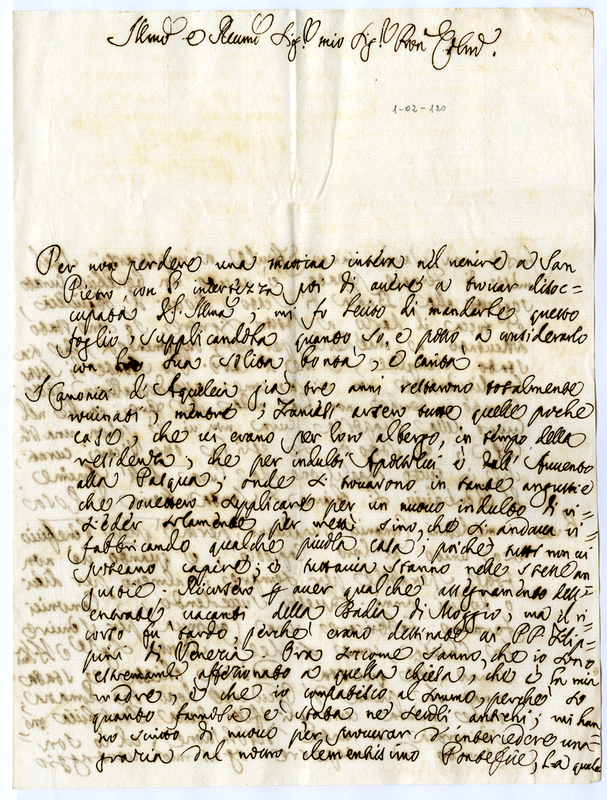 Illmo e Revmo Sigr mio Sigr Pron Colmo.
1-02-120
Per non perdere una mattina intera nel venire a San
Pietro, con l'incertezza poi di avere a trovar disoc=
cupata V.S. Illma, mi fo lecito di mandarle questo
foglio, supplicandola quando so, e posso, a considerarlo
con la sua solita bontà, e carità
I Canonici di Aquileia già tre anni restarono totalmente
rovinati, mentre, arsero tutte quelle poche
case, che vi erano per loro albergo, in tempo della
residenza, che per indulti Apostolici è dall' Avvento
alla Pasqua, onde si trovarono in tante angustie
che dovettero supplicare per un nuovo indulto di ri=
sieder solamente per mesi sino, che si andava ri=
fabbricando qualche picciola casa, poiché tutti non vi
poteano capire; e tuttavia stanno nelle stesse an
gustie. Ricorsero p aver qualche assegnamento dell=
entrate vacanti della Badia di Moggio, ma il ri=
corso fu tardo, perche erano destinate ai PP Filip=
pini di Venezia. Ora siccome sanno, che io sono
estremamte affezionato a quella chiesa, che è la mia
madre, e che io compatisco al sommo, perché so
quando famosa è stata ne' secoli antichi; mi han=
no scritto di nuovo per procurar d'intercedere una
grazia dal nostro clementissimo Pontefice, la quale